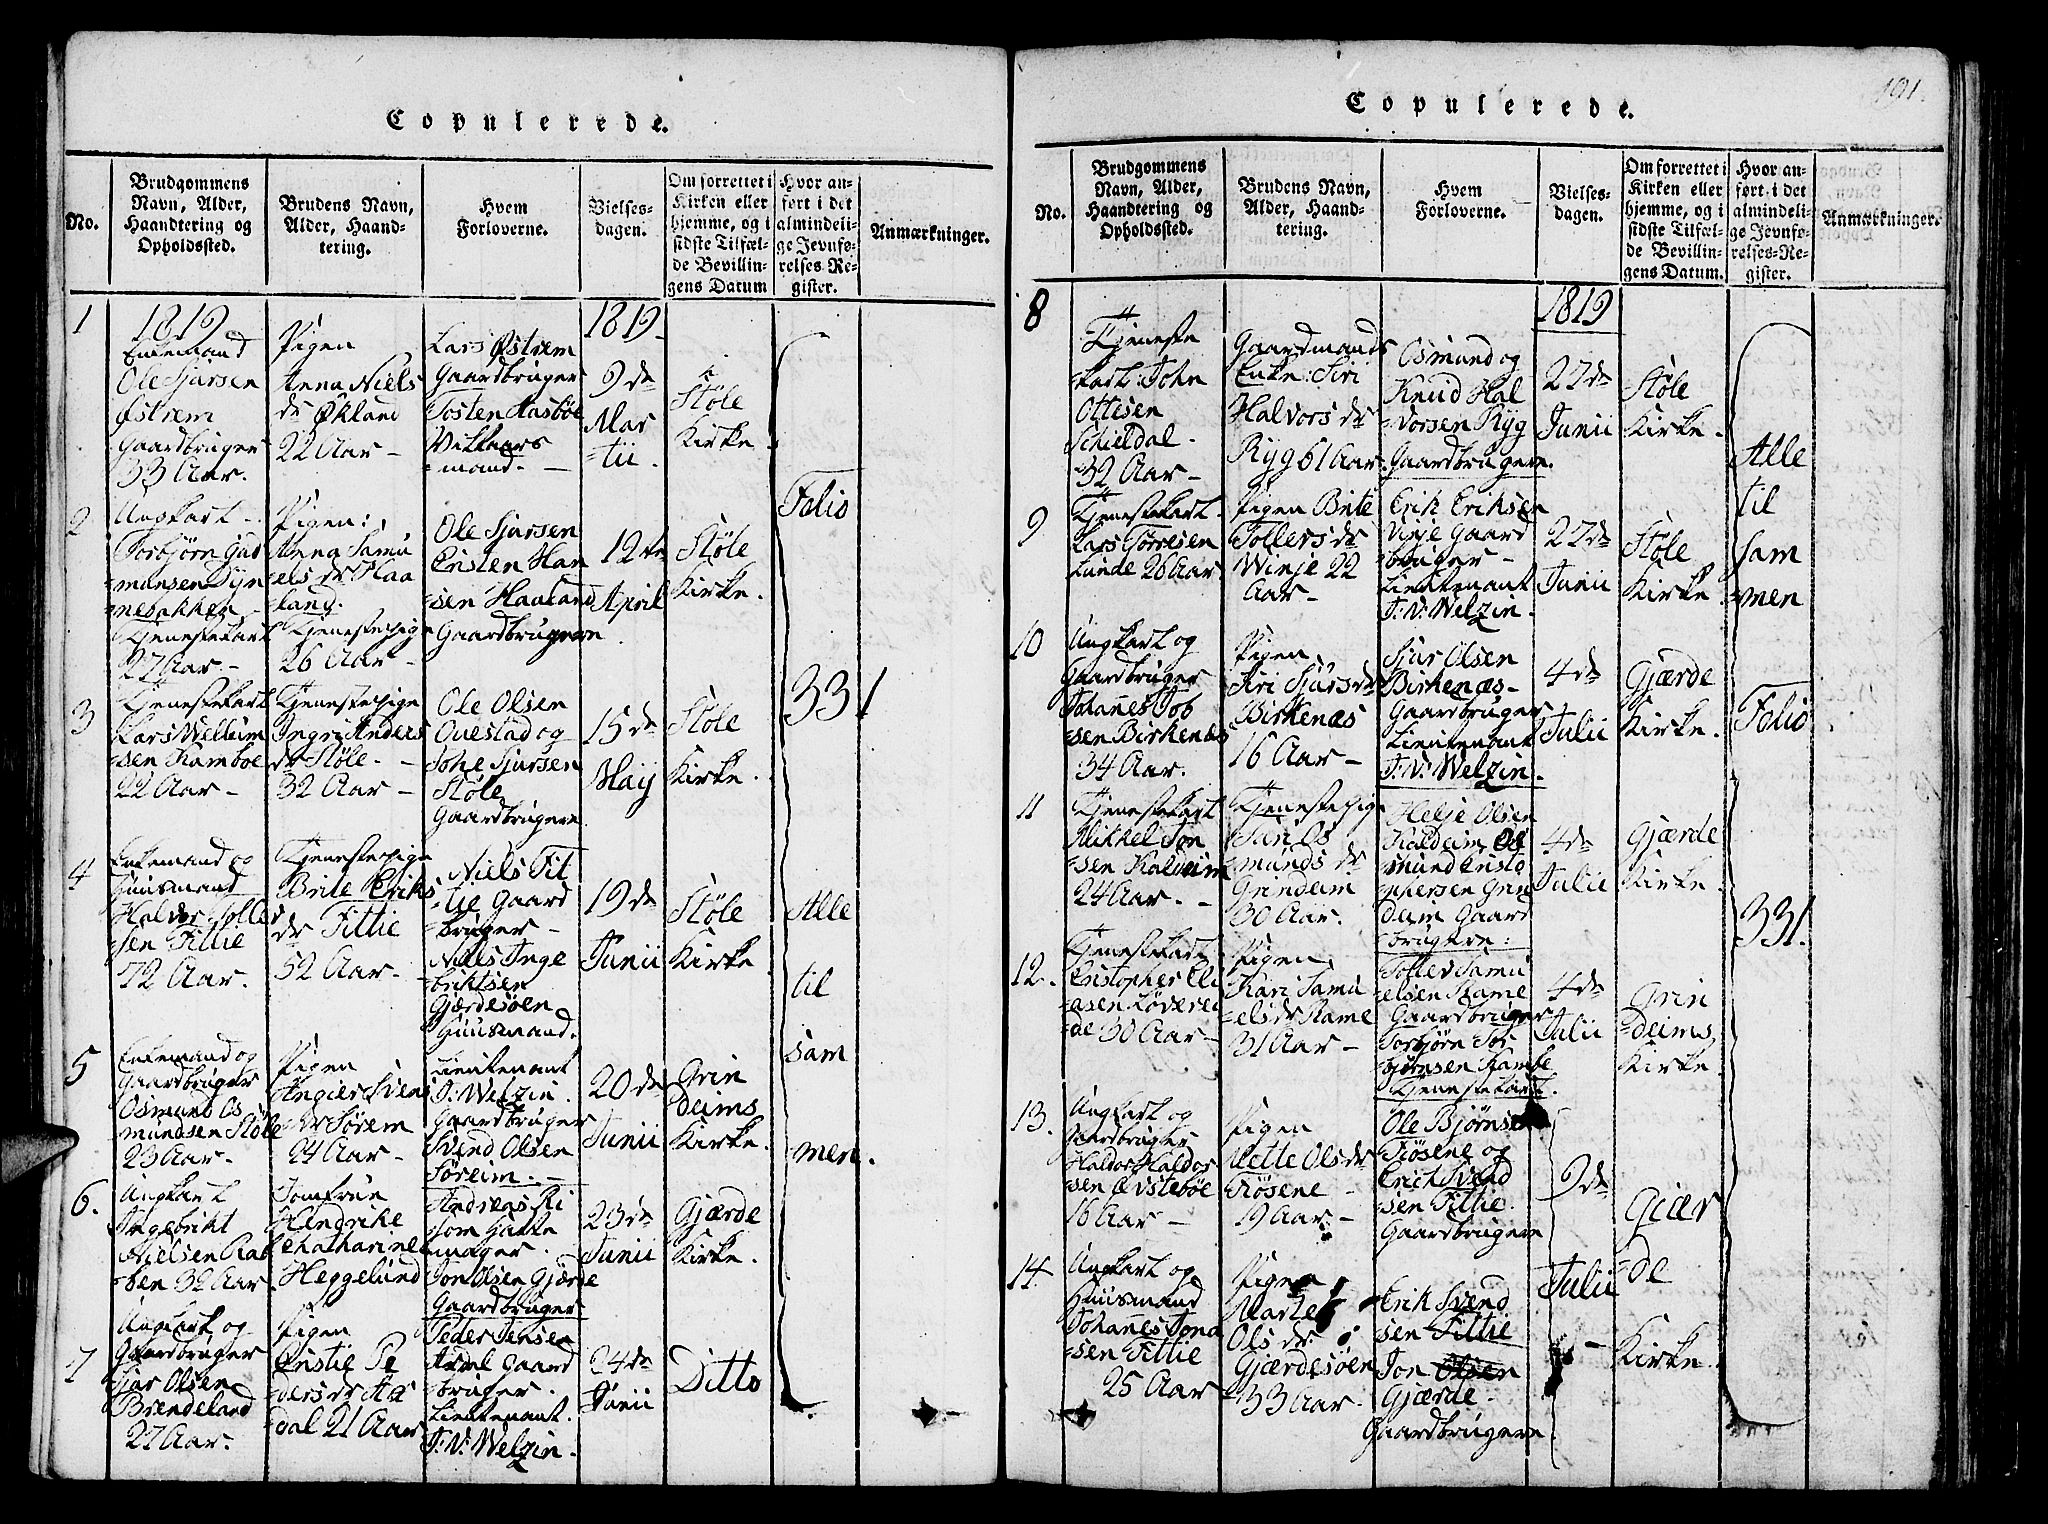 Copulerede.
No.
Brudgommens
Navn, Alder,
Haandtering og
Opholdssted.
Brudens Navn,
Alder, Haand-
tering.
Hvem
Forloverne.
Vielses-
dagen.
Om forrettet i
Kirken eller
hjemme, og i
sidste Tilfæl-
de Bevillin-
gens Datum
Hvor an-
ført i det
almindeli-
ge Jevnfø-
relses-Re-
gister.
Anmærkninger.
1
1819
Enkemand
Ole Sjursen
Østrem
Gaardbruger
33 Aar.
Pigen
Anna Niels
dr Økland
22 Aar -
Lars Østrem
Gaardbruger
Tosten Aasbøe
Vilkaars
=mand. -
1819
9de
Mar
=tii.
i
Støle
Kirke.
2
Ungkarl -
Torbjørn Gud
=munsen Dyn
nesakken -
Tjenestekarl
27 Aar. -
Pigen:
Anna Samu
els dr Haa
land.
Tjenestepige
26 Aar -
Ole Sjursen
Cristen Han
sen Hauland
Gaardbrugere.
12te
April
Støle
Kirke.
3
Tjenestekarl
Lars Wellum
sen Kamboe
22 Aar -
Tjenestepige
Ingri Anders
dr Støle. -
32 Aar -
Ole Olsen
Onestad og
Johe Sjursen
Støle
Gaardbrugere
15de
Maij
Støle
Kirke.
4
Enkemand og
Huusmand
Halvor Toller
sen Fittie
72 Aar.
Tjenestepige
Brite Eriks
dr Fittie
52 Aar -
Niels Fit
tje Gaard
=bruger -
Niels Inge
briktsen
Gjærdesøen
Huusmand.
19de
Junii
Støle
Kirke
5
Enkemand og
Gaardbruger
Osmund Os
mundsen Støle
23 Aar -
Pigen
Angier Svens
dr Sørem
24 Aar -
Lieutenant
T: Welzin.
Gaardbruger
Svend Olsen
Søreim. -
20de
Junii
Grin
deims
Kirke.
6.
Ungkarl
Ingebrikt
Nielsen Rab
=ben 32 Aar
Jomfrue
Hendrike
Chatharine
Heggelund
Andreas Ri
som Hatte
mager.
Jon Olsen Gjærde
Gaardbruger
23de
Junii
Gjærde
Kirke.
7
Ungkarl og
Gaardbruger
Sjur Olsen
Brendeland
27 Aar.
Pigen
Cristie Pe
ders dr Aa
dal 21 Aar
Peder Jensen
Aadal Gaard
=bruger.
Lieutenant.
T: V: Welzin.
24de
Junii
Ditto
Folio
331
Alle
til
sam
men.
Copulerede.
191.
No.
Brudgommens
Navn, Alder,
Haandtering og
Opholdssted.
Brudens Navn,
Alder, Haand-
tering.
Hvem
Forloverne.
Vielses-
dagen.
Om forrettet i
Kirken eller
hjemme, og i
sidste Tilfæl-
de Bevillin-
gens Datum.
Hvor an-
ført i det
almindeli-
ge Jevnfø-
relses-Re-
gister.
Anmærkninger.
8
Tjeneste
=karl: John
Ottesen
Schieldal -
32 Aar -
Gaardmands
Enke: Siri
Halvors dr
Ryg 61 Aar.
Osmund og
Knud Hal
=vorsen Ryg
Gaardbrugere.
1819
22de
Junii
Støle
Kirke.
9
Tjenestekarl.
Lars Torresen
Lunde 26 Aar
Pigen Brite
Tollers dr
Winje 22
Aar -
Erik Eriksen
Vinje Gaard
=bruger -
Lieutenant
T: V: Welzin.
22de
Junii
Støle
Kirke.
10
Ungkarl og
Gaardbruger
Johanes Job
sen Birkenæs
34 Aar.
Pigen
Siri Sjurs dr
Birkenæs
16 Aar -
Sjur Olsen
Birkenæs -
Gaardbruger
Lieutenant
T: V: Welzin.
4de
Julii
Gjærde
Kirke.
11
Tjenestekarl
Mikkel Jon
=sen Kaldeim
24 Aar. -
Tjenestepige
Siri Os
munds dr
Grindeim
30 Aar.
Helje Olsen
Kaldeim Os
mund Cristo
phersen Grin
deim Gaard
=brugere:
4de
Julii
Gjærde
Kirke.
12.
Tjenestekarl
Cristopher Eli
=asen Løverei
de 30 Aar -
Pigen
Kari Samu
els dr Rame
31 Aar -
Tollev Samu
=elsen Rame
Gaardbruger
Torbjørn Tor
bjørnsen Kambe
Tjenestekarl.
4de
Julii
Grin
=deims
Kirke.
13.
Ungkarl og
Gaardbruger
Haldor Haldor
sen Evstebøe
16 Aar -
Pigen
Mette Ols dr
Fiøsene -
19 Aar. -
Ole Bjørnsen
Fiøsene og
Erick Svend
sen Fittie.
Gaardbrugere
9de
Julii
Giær
=de
Kirke.
14.
Ungkarl og
Huusmand
Johanes Jona
sen Fittie
25 Aar
Pigen
Marte
Ols dr
Gjærdesøen
33 Aar.
Erik Svend
sen Fittie
Jon Olsen
Gjærde.
Gaardbrugere.
Alle
til
sam
men
Folio
331.